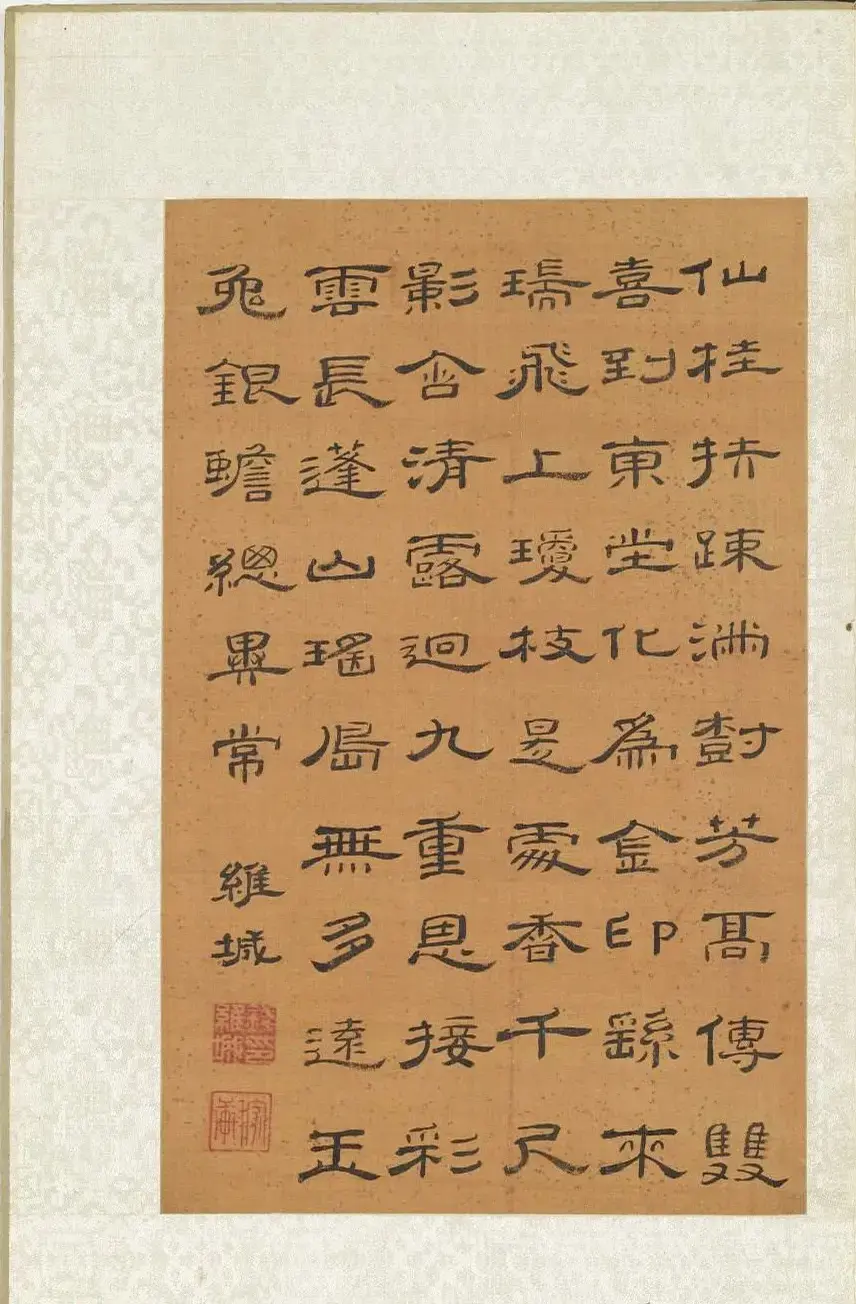 仙桂扶踈滿樹芳高傳雙
喜到東堂化為金印繇來
瑞飛上瓊枝是處香千尺
影含清露迥九重恩接彩
雲長蓬山瑤島無多遠玉
兔銀蟾總異常
維城
錢維城印